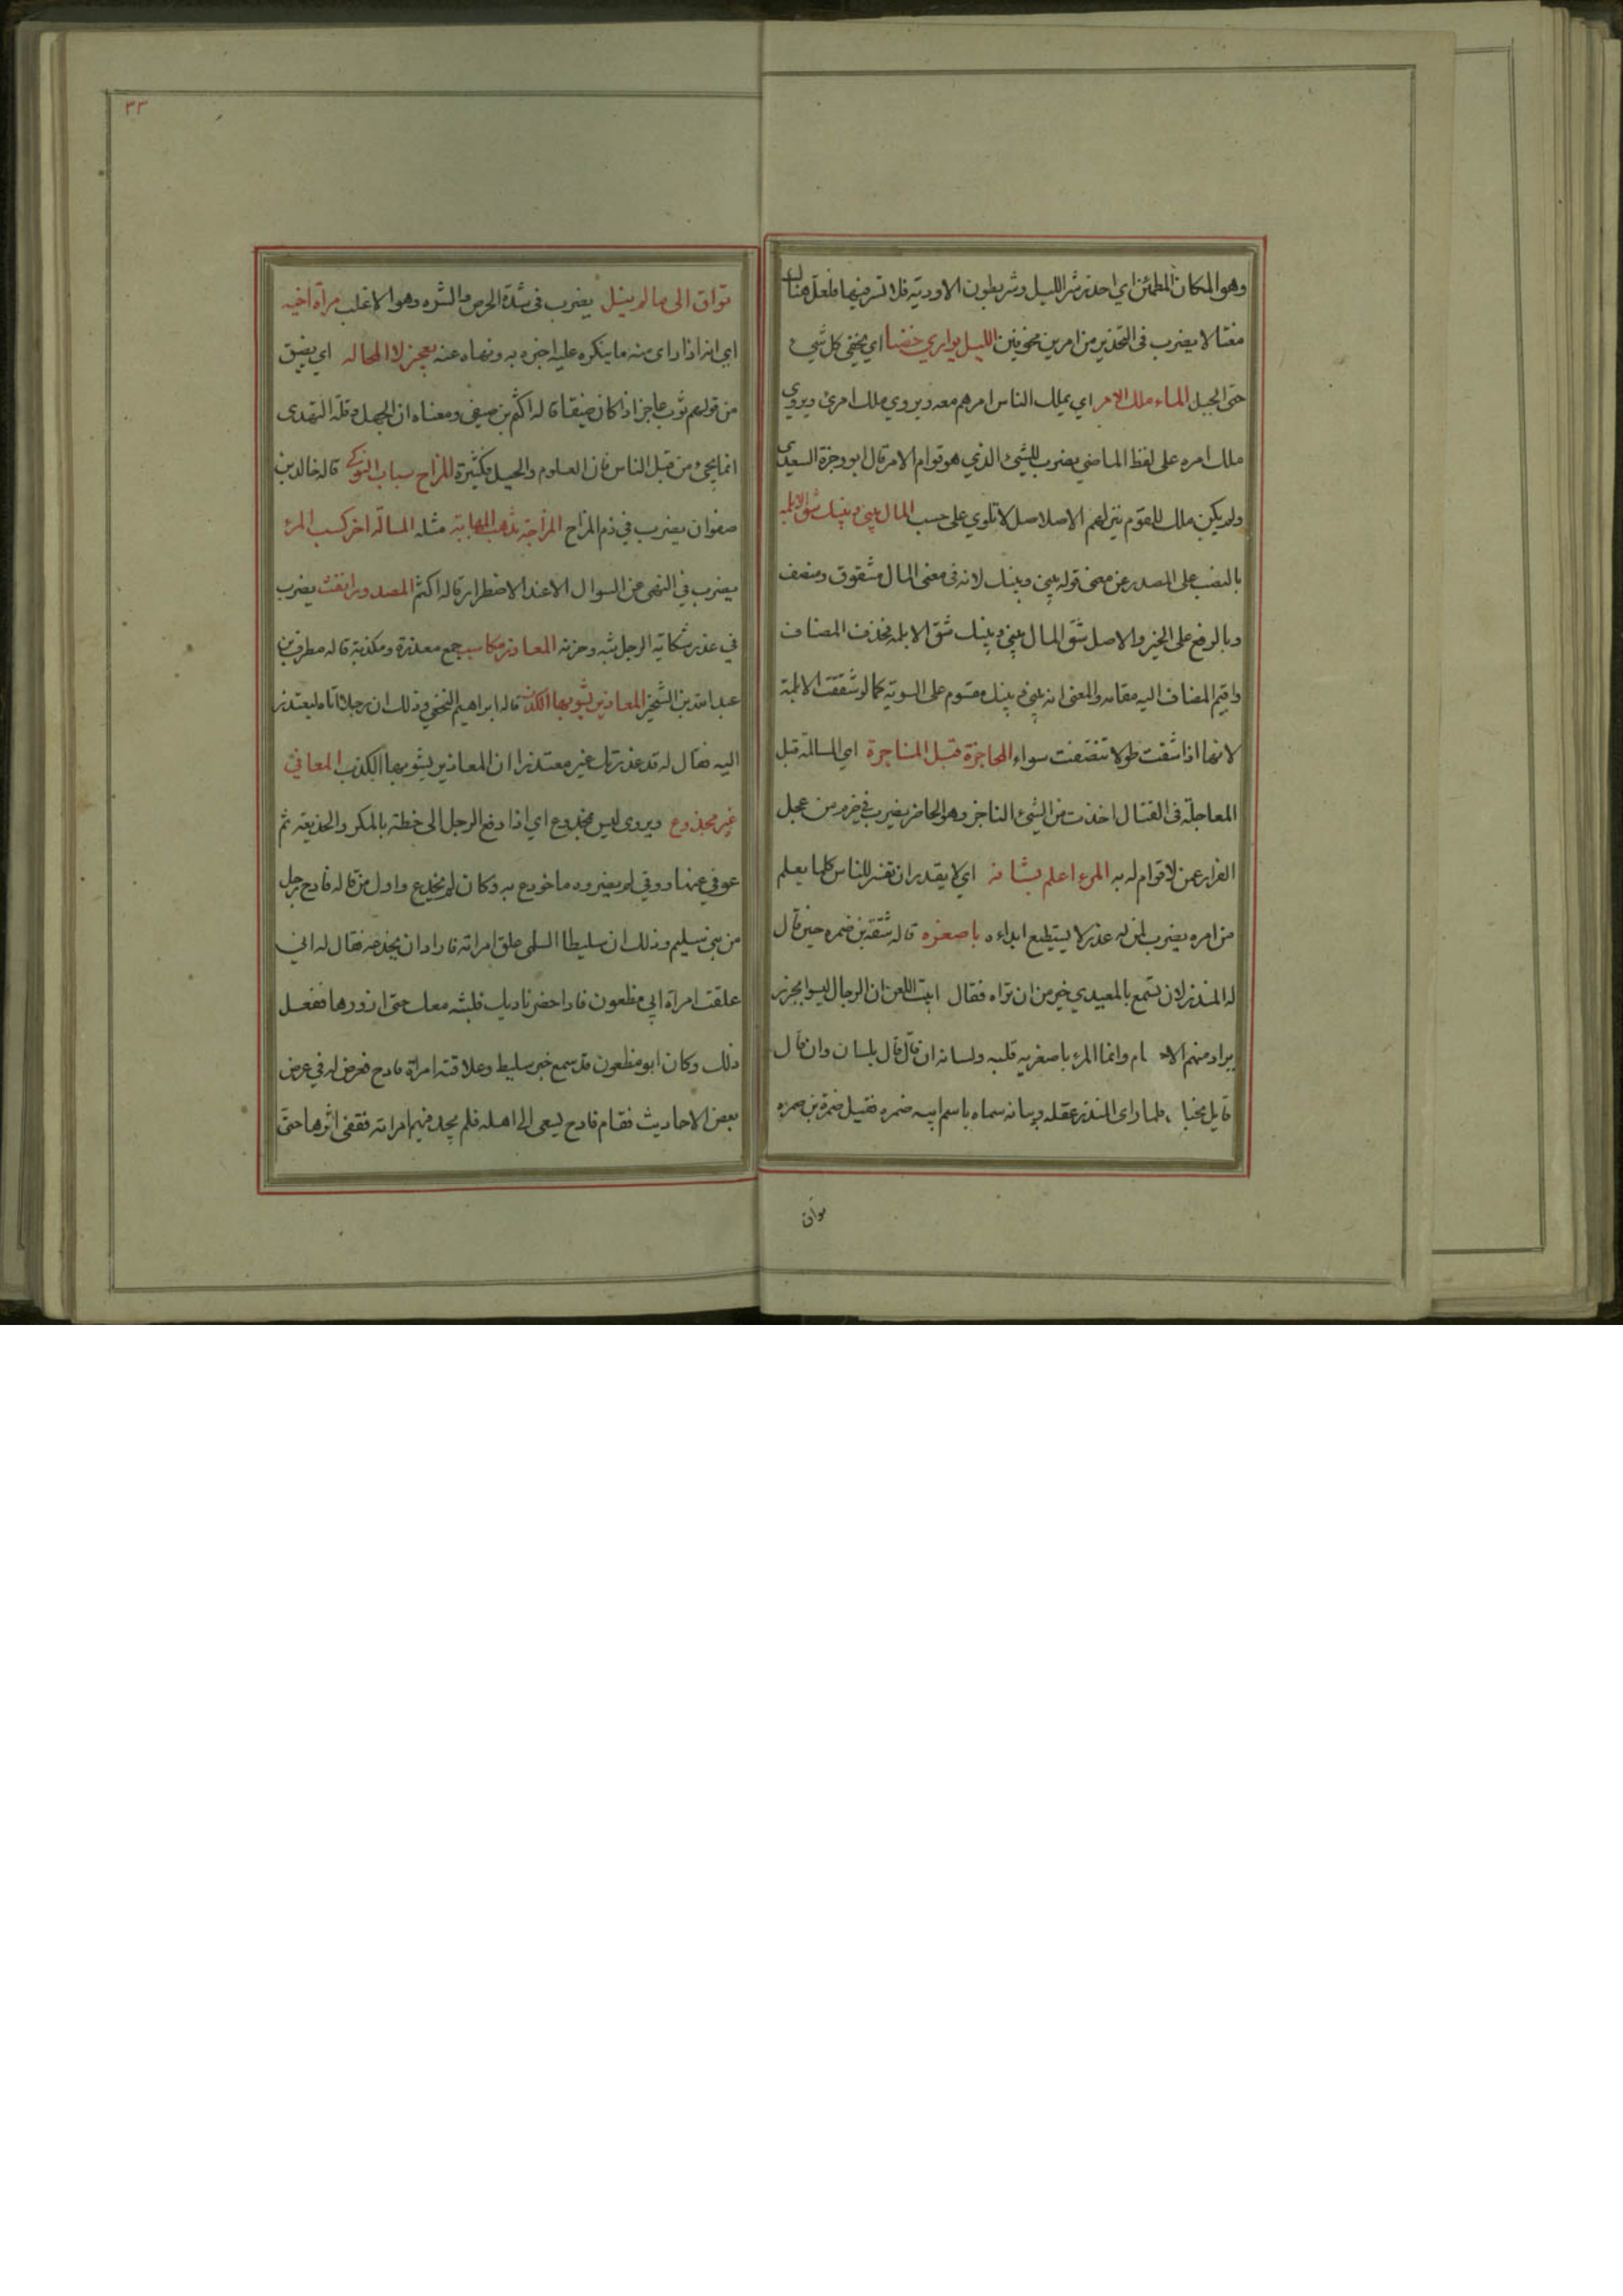 وهو المكان المطمئن اي احذر شر الليل وشر بطون الاودية فلا تسر فيها فلعل هناك
مغتالا يضرب في التحذير من امرين مخوفين الليل يواري حضنا اي يخفي كل شيء
حتى الجبل الماء ملك الامر اي يملك الناس امرهم معه ويروي ملك امرئ ويروي
ملك امره على لفظ الماضي يضرب للشيء الذي هو قوام الامر قال ابو وجزة السعدي
ولم يكن ملك للقوم ينزلهم الا صلاصل لا تلوي على حسب المال بيني وبينك شق الابلمة
بالنصب على المصدر عن معنى قوله بيني وبينك لانه في معنى المال مشقوق ومنصف
وبالرفع على الخبر والاصل شق المال بيني وبينك شق الابلمة فحذف المضاف
واقيم المضاف اليه مقامه والمعنى انه بيني وبينك مقسوم على السوية كما لو شققت الابلمة
لانها اذا شقت طولا تنصفت سواء المحاجزة قبل المناجزة اي المسالمة قبل
المعاجلة في القتال اخذت من الشيء الناجز وهو الحاضر يضرب في حزم من عجل
الفرار عمن لا قوام له به المرء اعلم بشانه اي لا يقدر ان تفسر للناس كلما يعلم
من امره يضرب لمن له عذر لا يستطيع ابداءه باصغره قاله شقة بن ضمره حين قال
له المنذر لان تسمع بالمعيدي خير من ان تراه فقال ابيت اللعن ان الرجال ليسوا بجزر
يراد منهم الاجسام وانما المرء باصغريه قلبه ولسانه ان قال قال بلسان وان قال
قايل بجنا فلما راى المنذر عقله وبيانه سماه باسم ابيه ضمره فقيل ضمرة بن ضمره
تواق
٣٣
تواق الى ما لم ينل يضرب في شدة الحرص والشره وهو الاغلب مرآة اخيه
اي انه اذا راى منه ما ينكره عليه اخبره به ونهاه عنه يعجز لا المحاله اي يضيق
من قولهم ثوب عاجز اذا كان ضيقا قاله اكثم بن صيفي ومعناه ان الجهل وقلة التهدى
انما يجيء من قبل الناس فان العلوم والحيل كثيرة المزاح سباب النوكى قاله خالد بن
صفوان يضرب في ذم المزاح المزاحة تذهب المهابة مثله المسالة اخر كسب المرء
يضرب في النهي عن السوال الا عند الاضطرار قاله اكثم المصدور انفث يضرب
في عذر شكاية الرجل بثه وحزنه المعاذر مكاسب جمع معذرة ومكذبة قاله مطرف بن
عبد الله بن الشخير المعاذير يشوبها الكذب قاله ابراهيم النخعي وذلك ان رجلا اتاه ليعتذر
اليه فقال له قد عذرتك غير معتذر ان المعاذير يشوبها الكذب المعافى
غير مخدوع ويروى ليس بمخدوع اي اذا دفع الرجل الى خطة بالمكر والخديعة ثم
عوفي عنها ووقي لم يضره ما خودع به وكان لم يخدع واول من قاله قادح رجل
من بني سليم وذلك ان سليطا السلمى علق امراته فاراد ان يخدعه فقال له اني
علقت امراة ابي مظعون فاذا حضر ناديك فلبثه معك حتى ازورها ففعل
ذلك وكان ابو مظعون قد سمع خبر سليط وعلاقته امراة قادح فعرض له في عرض
بعض الاحاديث فقام قادح يسعى الى اهله فلم يجد فيهم امراته فقفى اثرها حتى